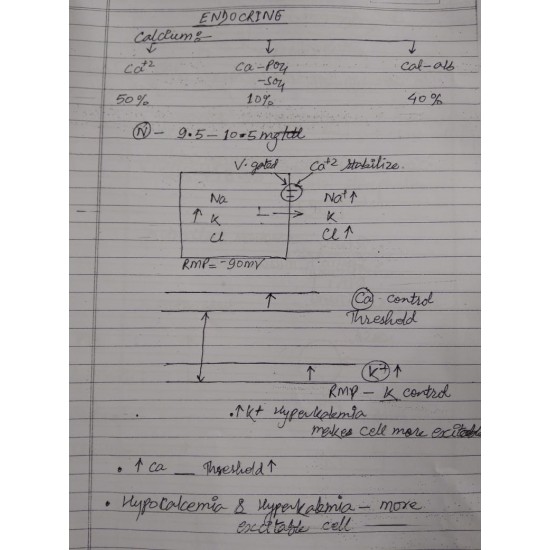 ENDOCRING
Calcium:-
Ca+2 Ca-PO4 Cal-alb
-SO4
50% 10% 40%
(N) - 9.5-10.5mg
V.gated Ca+2 stabilize.
Na Na+↑
↑ K K
Cl Cl ↑
RMP=-90mV
↑ Ca-control
Threshold
↑ K+ ↑
RMP - K control
.↑K+ Hyperkalemia
makes cell more excitable
• ↑ Ca __ Threshold↑
• Hypocalcemia & Hyperkalemia - more
excitable cell